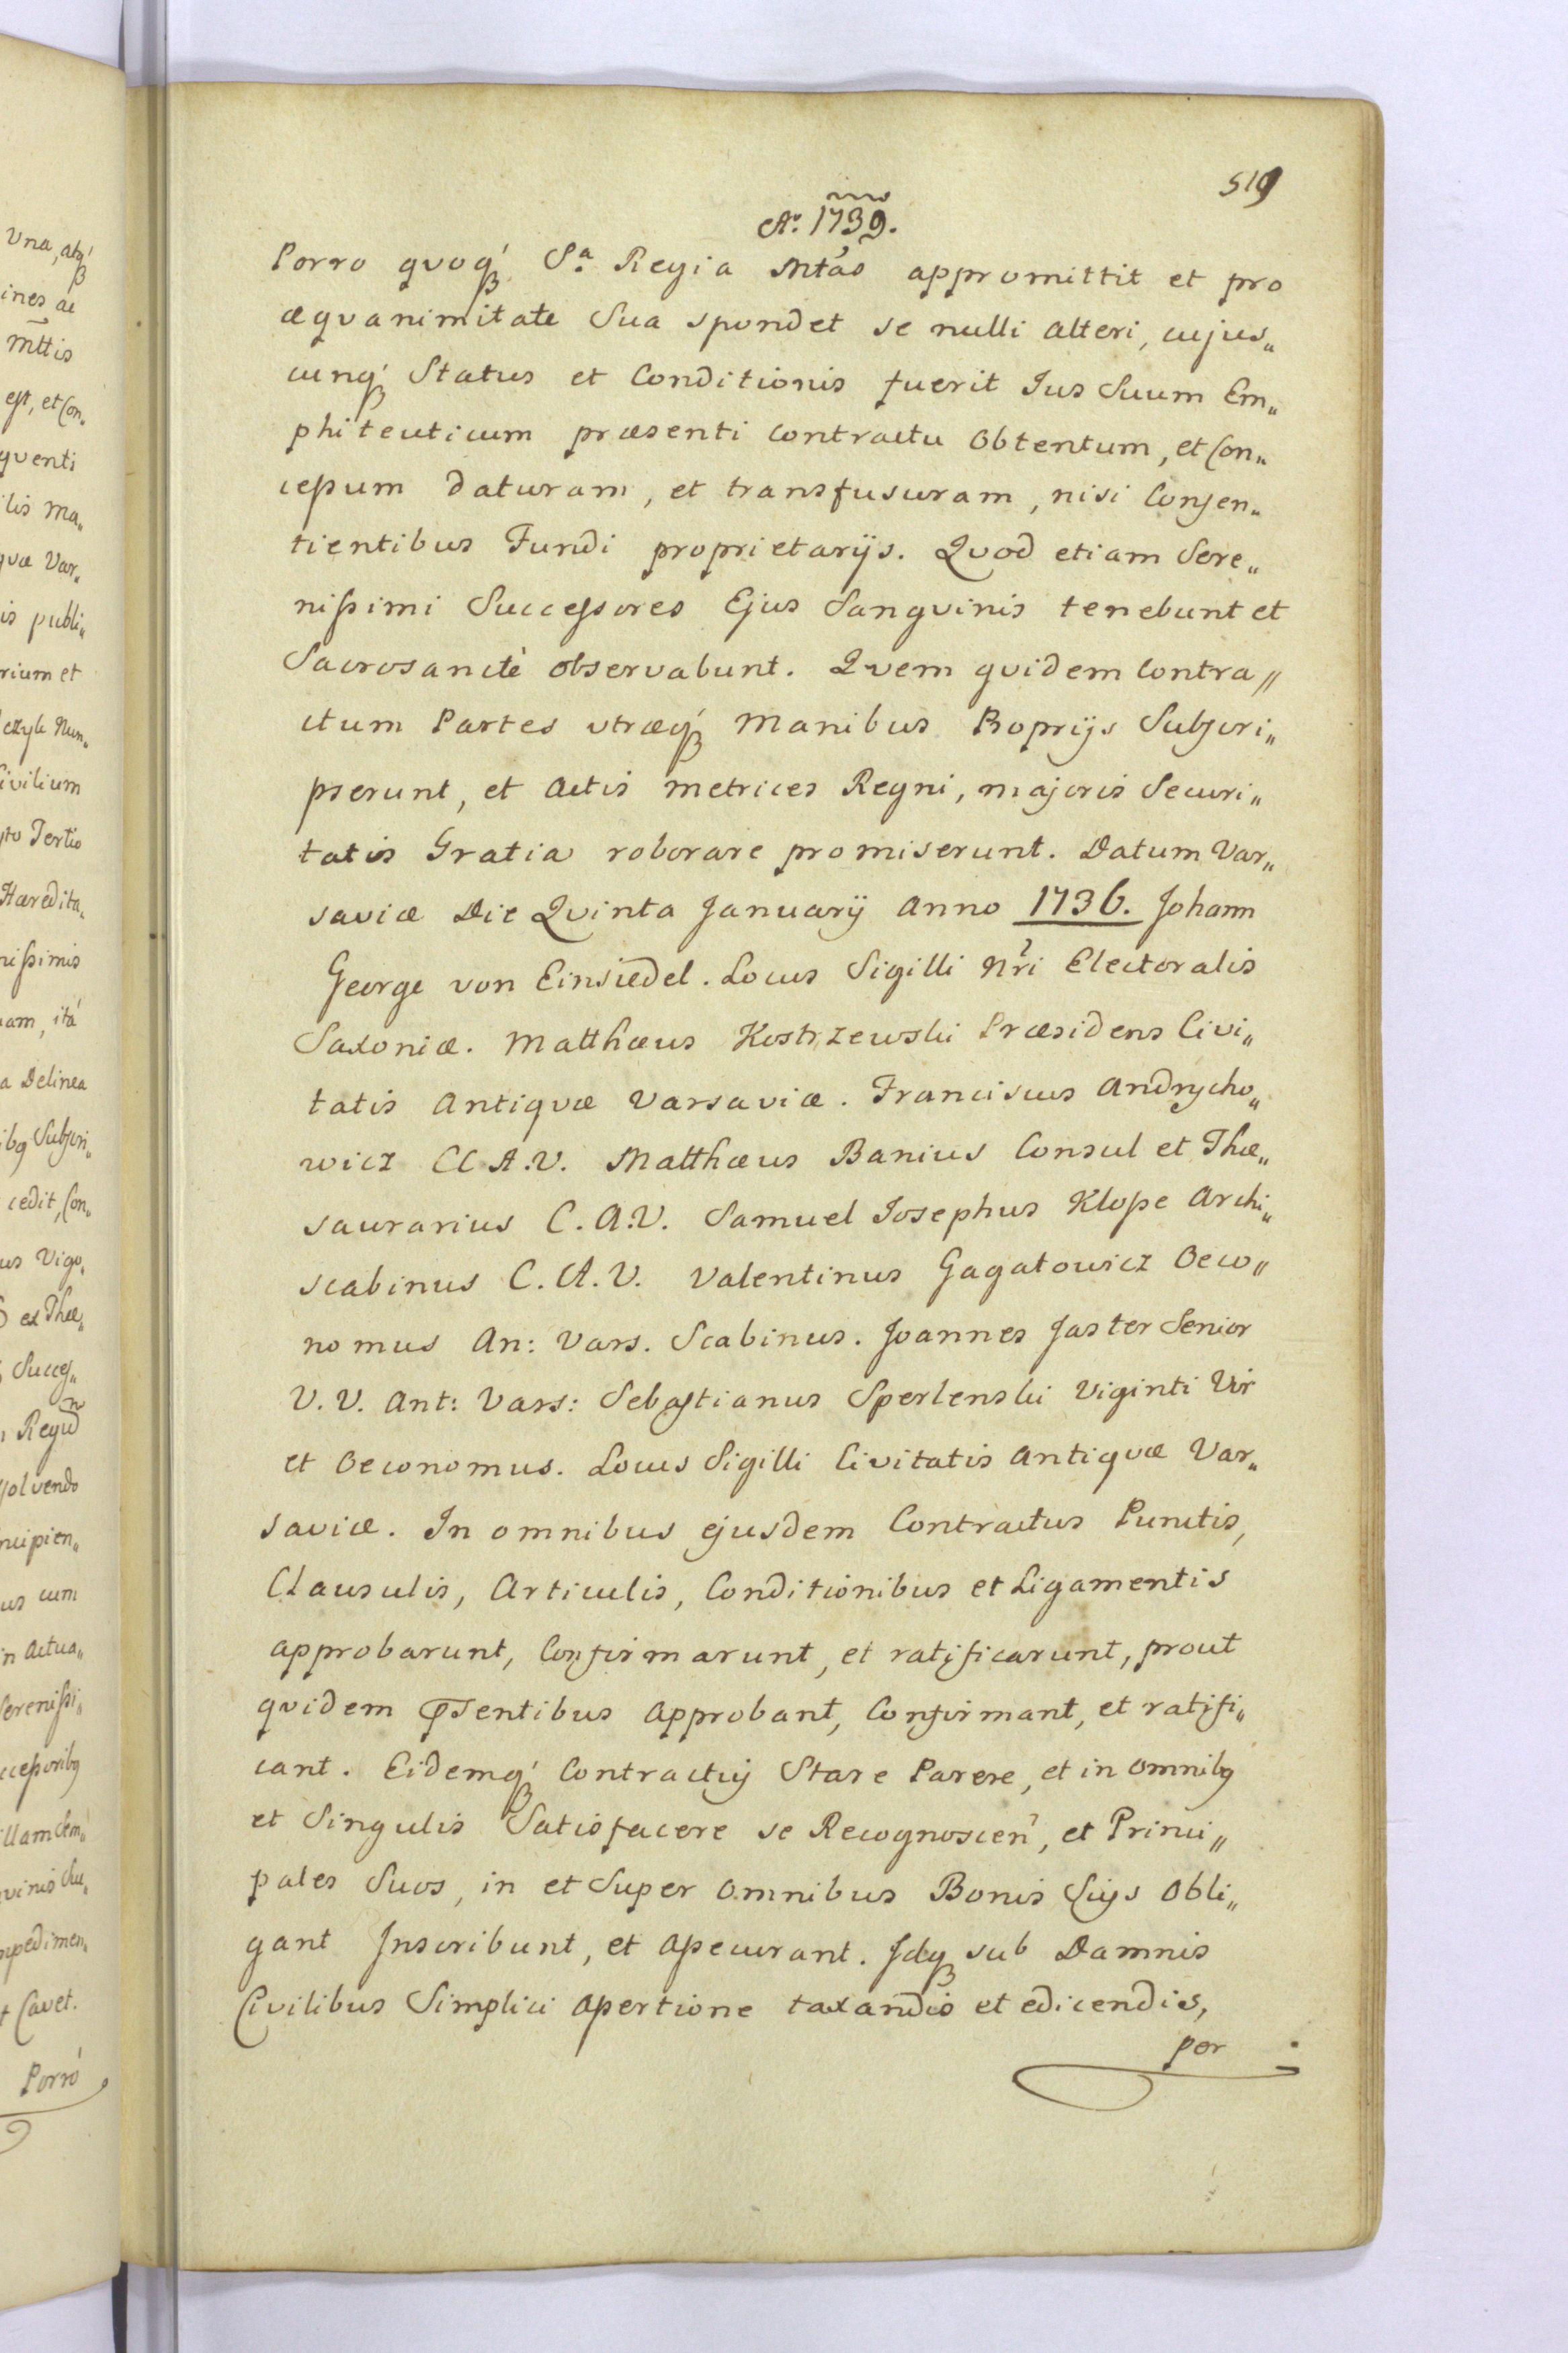 519
Aº. 1739.
Porro quoq́ꝫ Sª Regia Mtas appromittit et pro
æquanimitate Sua spondet se nulli alteri, cujus„
cunq́ꝫ Status et Conditionis fuerit Jus Suum Em„
phiteuticum præsenti contractu Obtentum, et Con„
ceßum daturam, et transfusuram, nisi Consen„
tientibus Fundi proprietarijs. Quod etiam Sere„
nißimi Successores Ejus Sanguinis tenebunt et
Sacrosanctè observabunt. Quem quidem Contra„
ctum Partes utræq́ꝫ Manibus Proprijs Subscri„
pserunt, et Actis Metrices Regni, majoris Securi„
tatis Gratia roborare promiserunt. Datum Var„
saviæ Die Quinta Januarij Anno 1736. Johann
George von Einsiedel. Locus Sigilli Nri Electoralis
Saxoniæ. Matthæus Kostrzewski Præsidens Civi„
tatis Antiquæ Varsaviæ. Franciscus Andrycho„
wicz C A.V. Matthæus Banius Consul et The„
saurarius C.A.V. Samuel Josephus Kloße Archi„
scabinus C.A.V. Valentinus Gagatowicz Oeco„
nomus An: Vars. Scabinus. Joannes Jaster Senior
V.V. Ant: Vars: Sebastianus Sperlenski Viginti Vir
et Oeconomus. Locus Sigilli Civitatis Antiquæ Var„
saviæ. In omnibus ejusdem Contractus Punctis,
Clausulis, Articulis, Conditionibus et Ligamentis
approbarunt, Confirmarunt, et ratificarunt, prout
quidem pñsentibus Approbant, Confirmant, et ratifi„
cant. Eidemq́ꝫ Contractuj Stare Parere, et in omnibꝫ
et Singulis Satisfacere se Recognoscen, et Princi„
pales Suos, in et Super Omnibus Bonis Suijs Obli„
gant Inscribunt, et aßecurant. Idqꝫ sub Damnis
Civilibus Simplici aßertione taxandis et edicendis,
per